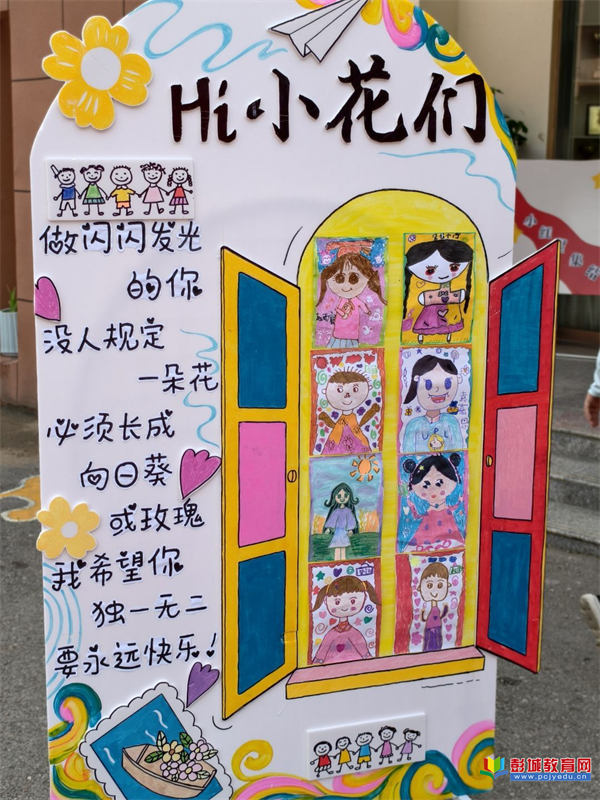 Hi·小花们
做闪闪发光
的你
没人规定
一朵花
必须长成
向日葵
或玫瑰
我希望你
独一无二
要永远快乐!
彭城教育网
www.pcjyedu.cn